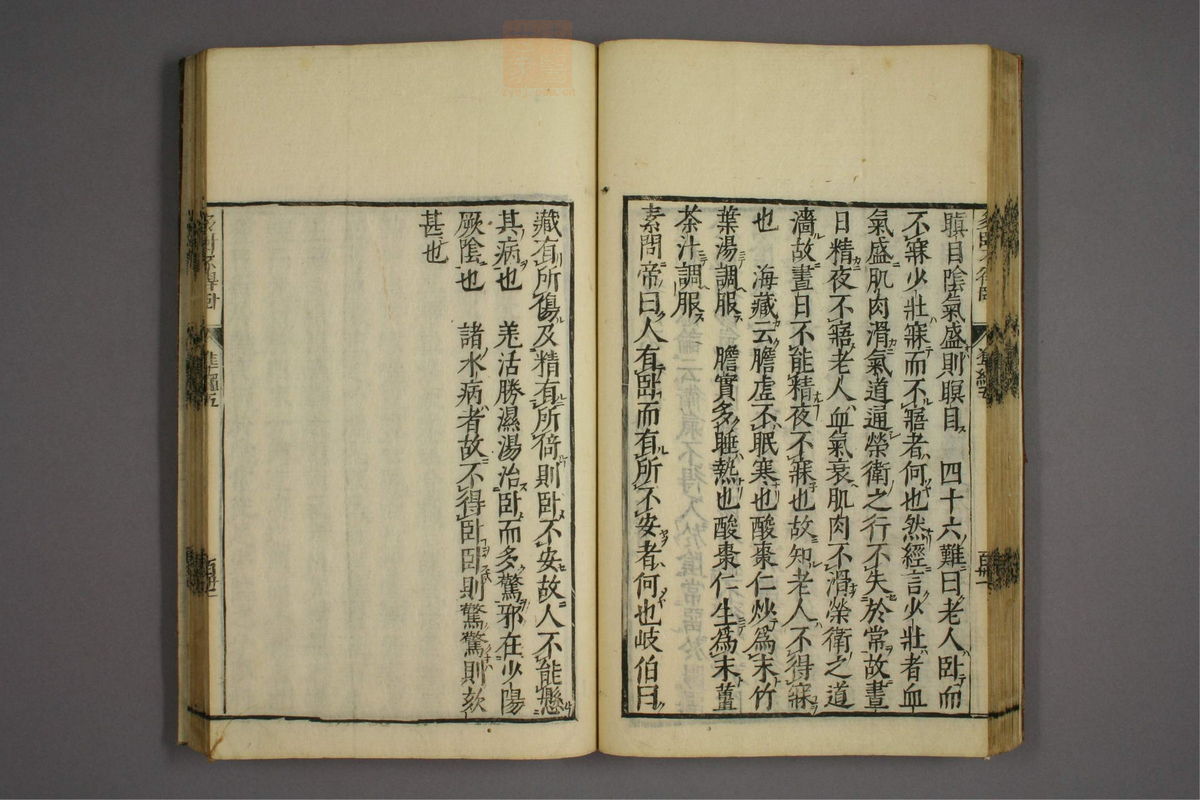 瞋目陰氣盛則瞑目　四十六難曰老人臥而
不寐少壯寐而不寤者何也然經言少壯者血
氣盛肌肉滑氣道通榮衛之行不失於常故晝
日精夜不寤老人血氣衰肌肉不滑榮衛之道
濇故晝日不能精夜不寐也故知老人不得寐
也　海藏云膽虛不眠寒也酸棗仁炒為末竹
葉湯調服　膽實多睡熱也酸棗仁生為末薑
茶汁調服
素問帝曰人有臥而有所不安者何也岐伯曰
藏有所傷及精有所倚則臥不安故人不能懸
其病也　羌活勝濕湯治臥而多驚邪在少陽
厥陰也　諸水病者故不得臥臥則驚驚則欬
甚也